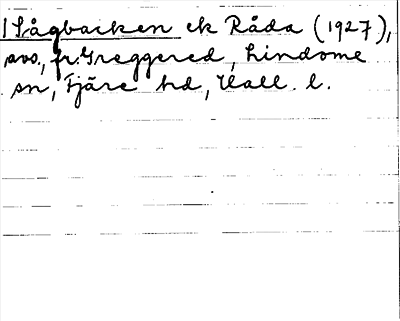 Sågbacken ek Råda (1927),
avs. fr. Greggered, Lindome
sn, Fjäre hd, Hall. l.